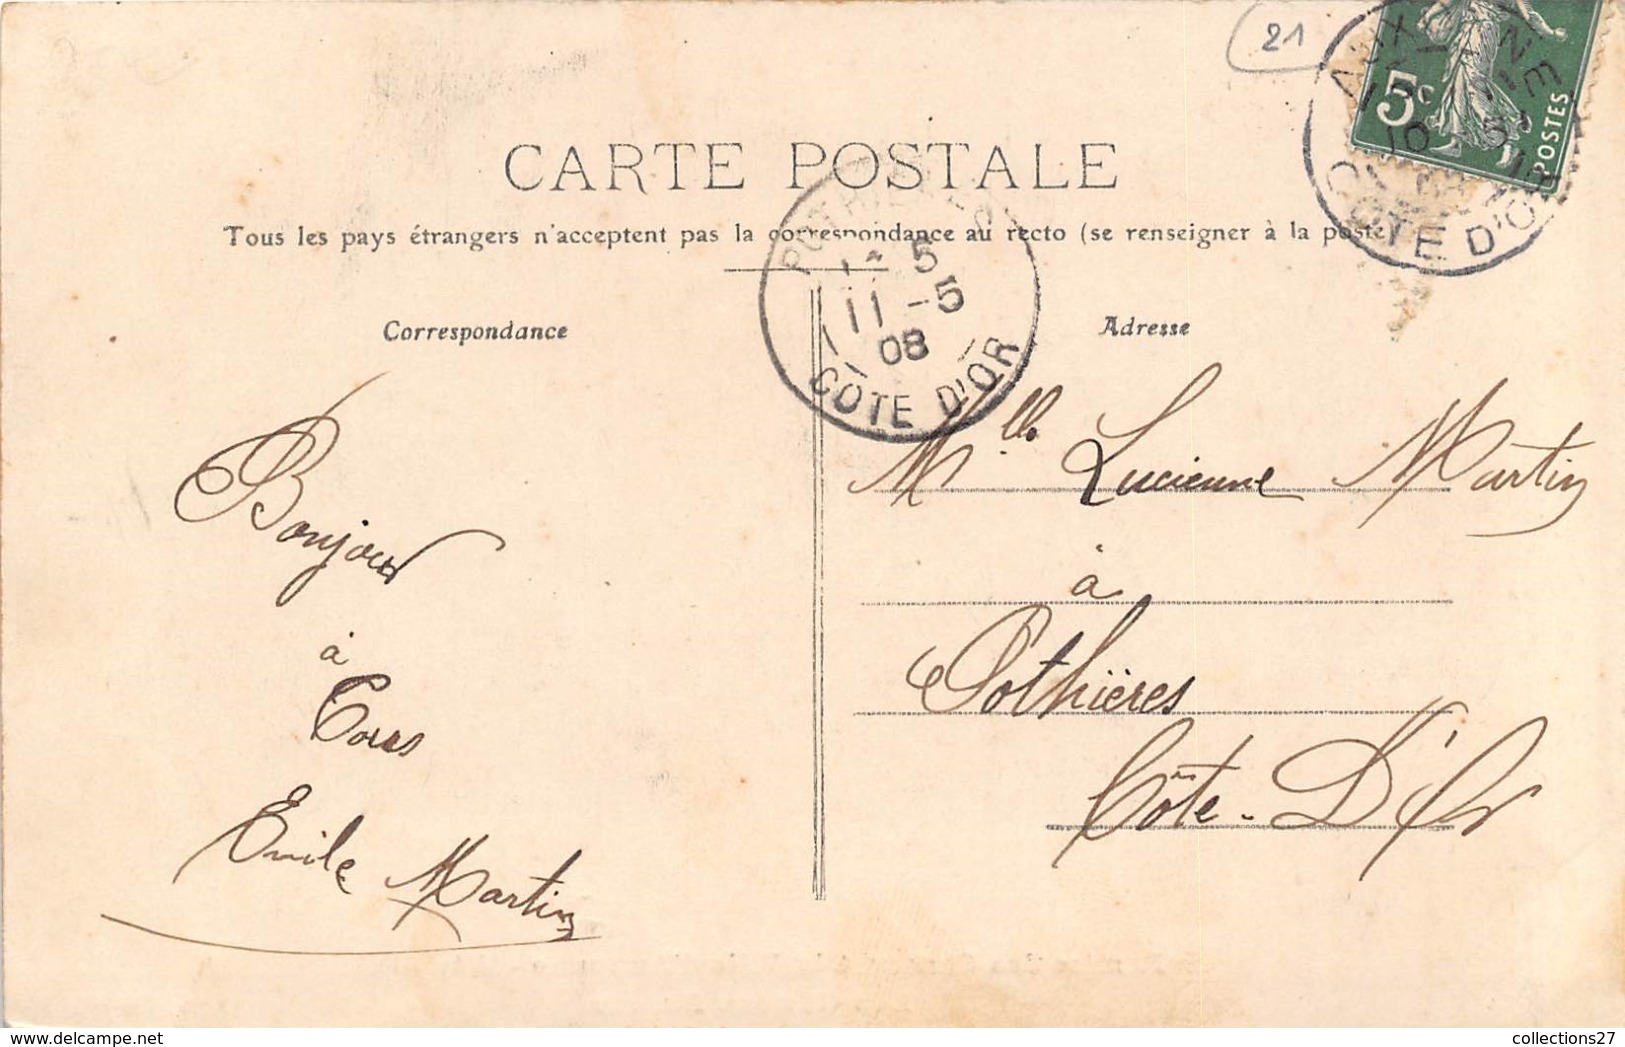 21
5c
POSTES
AUXONNE
10 - 5
08
CÔTE D'OR
CARTE POSTALE
Tous les pays étrangers n'acceptent pas la correspondance au recto (se renseigner à la poste)
POTHIERES
5
11 - 5
08
CÔTE D'OR
Correspondance
Adresse
Bonjour
à
Tous
Emile Martin
Mlle Lucienne Martin
à
Pothières
Côte-D'Or
collections27